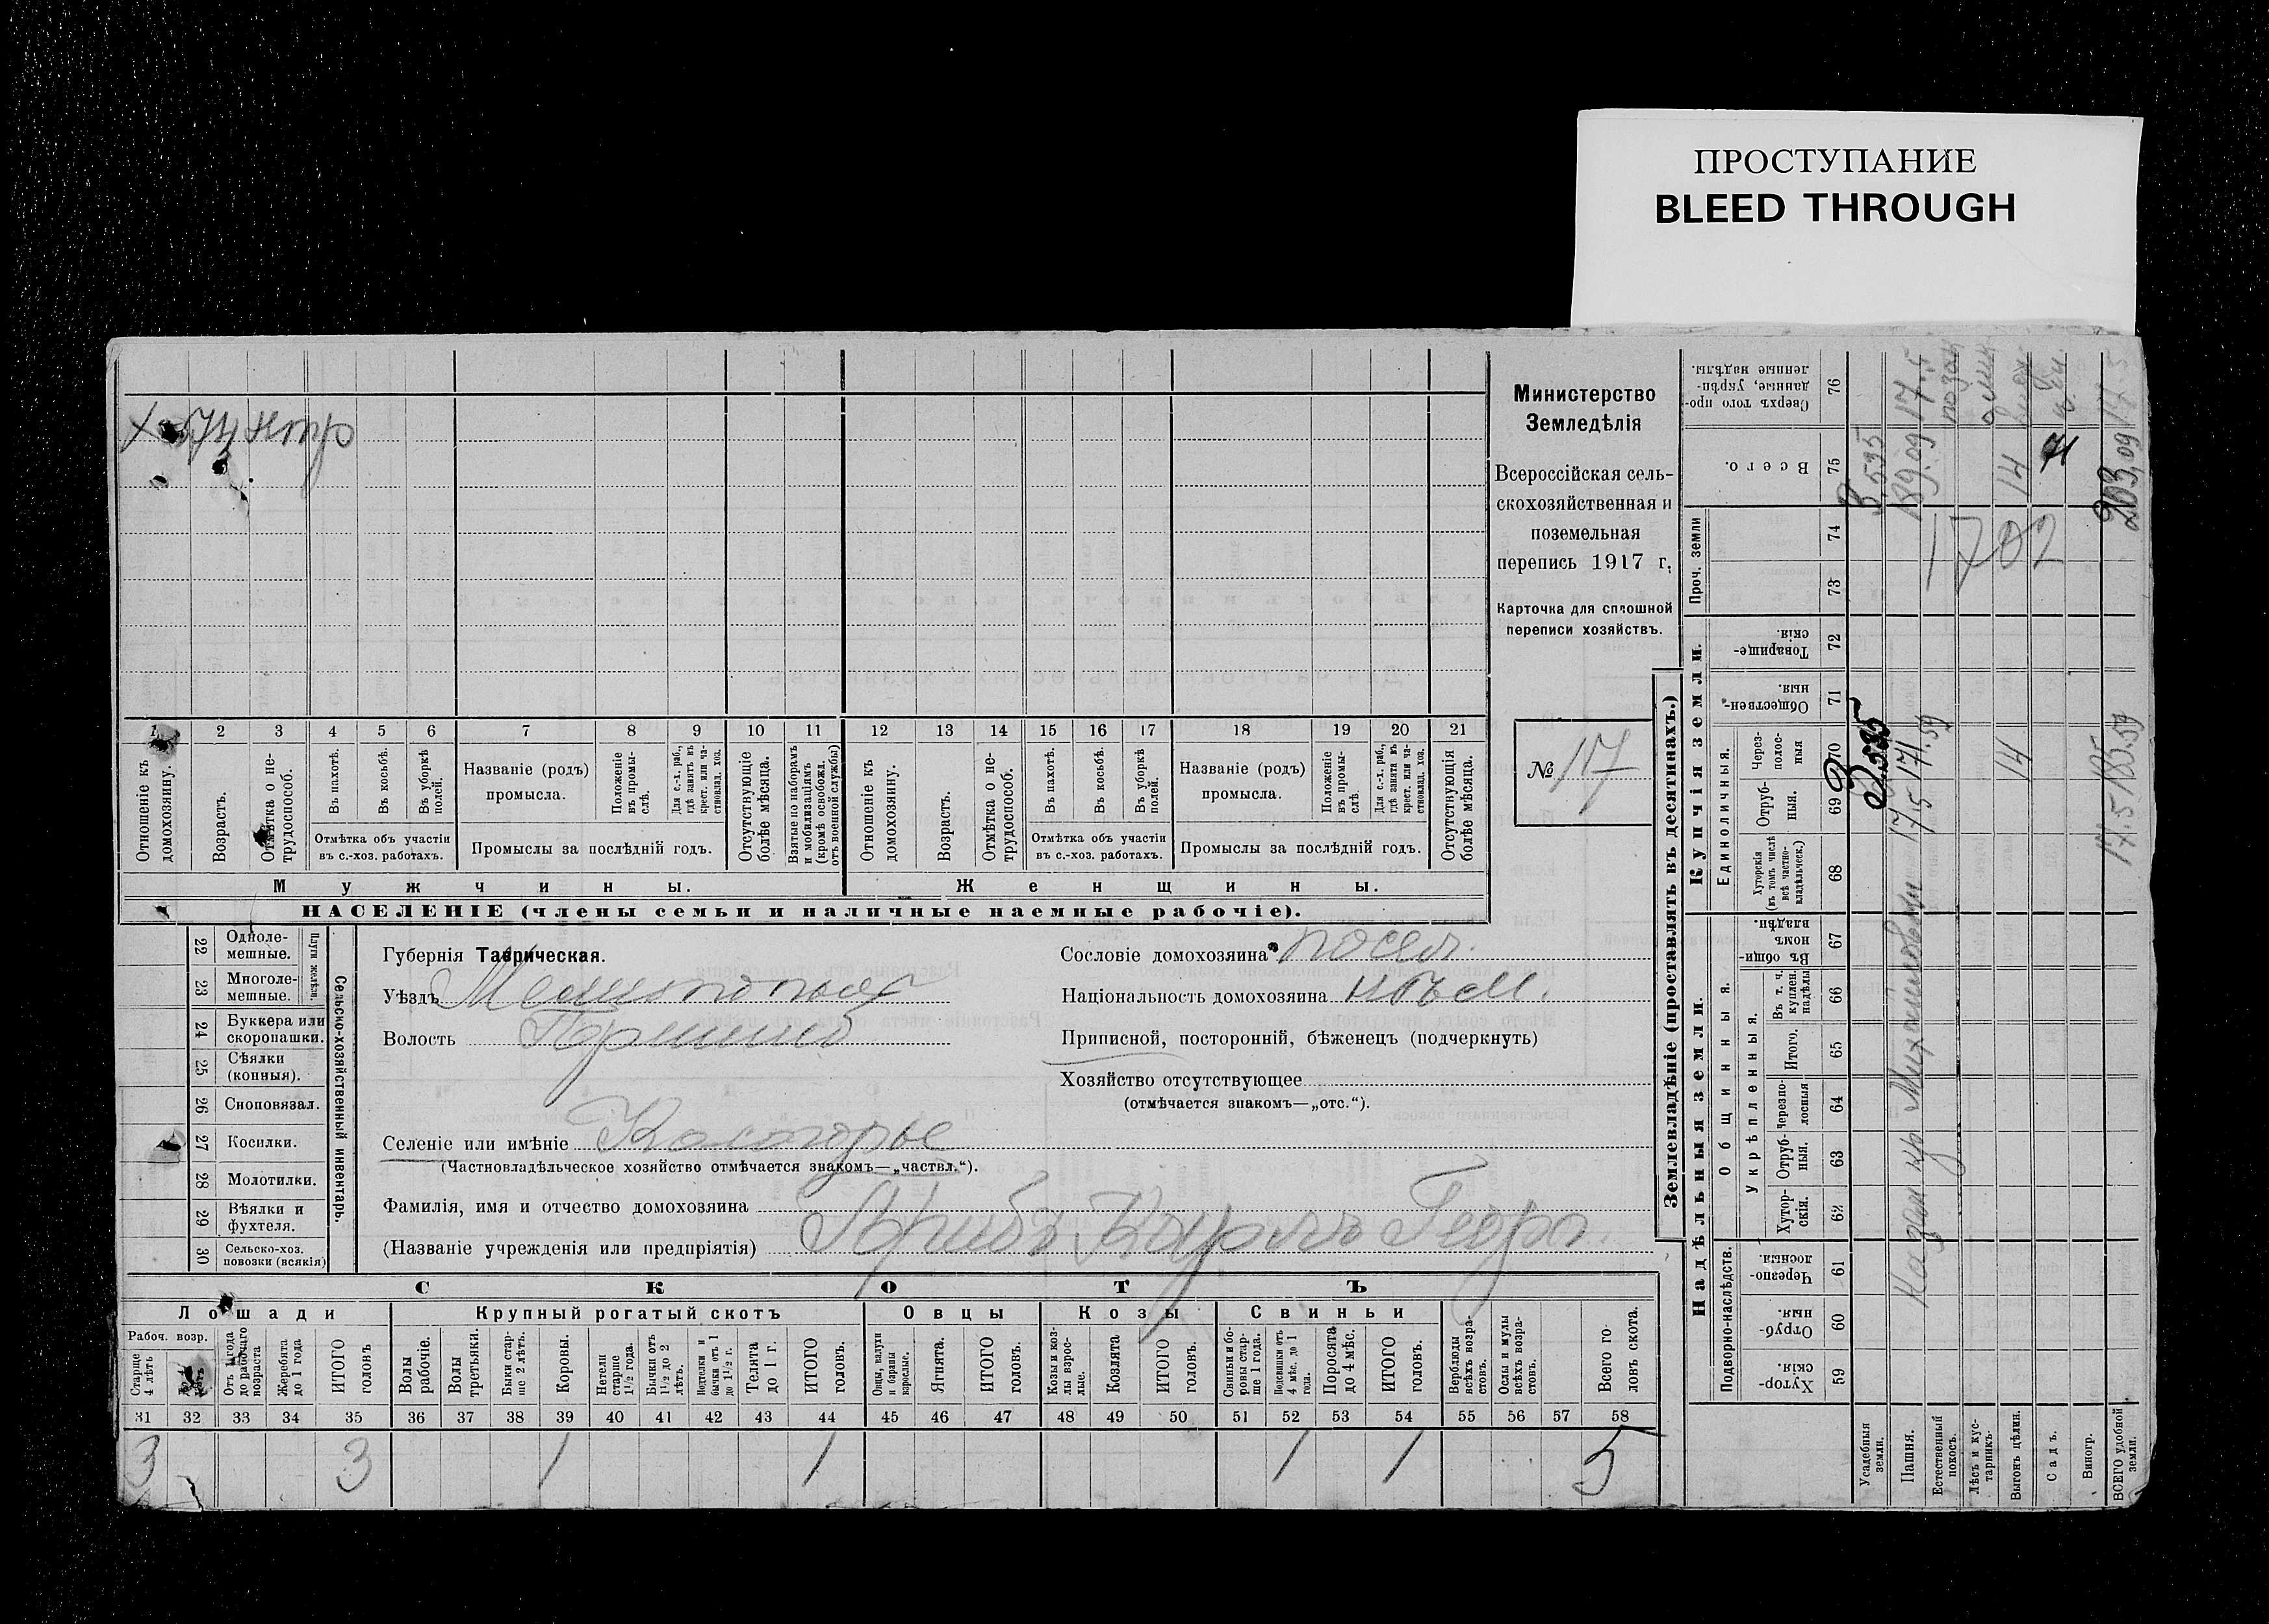 ПРОСТУПАНИЕ
BLEED THROUGH
Министерство
Земледѣлія
Всероссійская сель-
скохозяйственная и
поземельная
перепись 1917 г.
Карточка для сплошной
переписи хозяйствъ.
№ 17
1 2 3 4 5 6 7 8 9 10 11 12 13 14 15 16 17 18 19 20 21
Отношеніе къ домохозяину.
Возрастъ.
Отмѣтка о не-трудоспособ.
Въ пахотѣ.
Въ косьбѣ.
Въ уборкѣ полей.
Отмѣтка объ участіи
въ с.-хоз. работахъ.
Названіе (родъ)
промысла.
Положеніе въ промы-слѣ.
Для с.-х. раб., гдѣ занятъ въ крест. или ча-стновлад. хоз.
Промыслы за послѣдній годъ.
Отсутствующіе болѣе мѣсяца.
Взятые по наборамъ и мобилизаціямъ (кромѣ освобожд. отъ военной службы)
Отношеніе къ домохозяину.
Возрастъ.
Отмѣтка о не-трудоспособ.
Въ пахотѣ.
Въ косьбѣ.
Въ уборкѣ полей.
Отмѣтка объ участіи
въ с.-хоз. работахъ.
Названіе (родъ)
промысла.
Положеніе въ промы-слѣ.
Для с.-х. раб., гдѣ занята въ крест. или ча-стновлад. хоз.
Промыслы за послѣдній годъ.
Отсутствующія болѣе мѣсяца.
Мужчины.
Женщины.
НАСЕЛЕНІЕ (члены семьи и наличные наемные рабочіе).
Сельско-хозяйственный инвентарь.
Плуги желѣзн.
22 Одноле-мешные.
23 Многоле-мешные.
24 Буккера или скоропашки.
25 Сѣялки (конныя).
26 Сноповязал.
27 Косилки.
28 Молотилки.
29 Вѣялки и фухтеля.
30 Сельско-хоз. повозки (всякія)
Губернія Таврическая.
Уѣздъ Мелитополь
Волость
Селеніе или имѣніе Костогрые
(Частновладѣльческое хозяйство отмѣчается знакомъ—„частвл.“).
Фамилія, имя и отчество домохозяина
(Названіе учрежденія или предпріятія) Карлъ Георг.
Сословіе домохозяина посел.
Національность домохозяина нѣм.
Приписной, посторонній, бѣженецъ (подчеркнуть)
Хозяйство отсутствующее
(отмѣчается знакомъ—„отс.“).
СКОТЪ
Лошади
Рабоч. возр.
Старше 4 лѣтъ
Отъ 1 года до рабочаго возраста
Жеребята до 1 года
ИТОГО головъ
Крупный рогатый скотъ
Волы рабочіе.
Волы третьяки.
Быки стар-ше 2 лѣтъ.
Коровы.
Нетели старше 1½ года.
Бычки отъ 1½ до 2 лѣтъ.
Нетелки и бычки отъ 1 до 1½ г.
Телята до 1 г.
ИТОГО головъ.
Овцы
Овцы, валухи и бараны взрослые.
Ягнята.
ИТОГО головъ.
Козы
Козы и коз-лы взрос-лые.
Козлята
ИТОГО головъ.
Свиньи
Свиньи и бо-ровы стар-ше 1 года.
Подсвинки отъ 4 мѣс. до 1 года.
Поросята до 4 мѣс.
ИТОГО головъ.
Верблюды всѣхъ возра-стовъ.
Ослы и мулы всѣхъ возра-стовъ.
Всего го-ловъ скота.
31 32 33 34 35 36 37 38 39 40 41 42 43 44 45 46 47 48 49 50 51 52 53 54 55 56 57 58
3 3 1 1 1 1 5
Землевладѣніе (проставлять въ десятинахъ.)
Надѣльныя земли.
Купчія земли.
Проч. земли
Подворно-наслѣдств.
Общинныя.
Укрѣпленныя.
Единоличныя.
59 Хутор-скія.
60 Отруб-ныя.
61 Черезпо-лосныя.
62 Хутор-скія.
63 Отруб-ныя.
64 Черезпо-лосныя
65 Итого.
66 Въ т. ч. куплен. надѣлы
67 Въ общин-номъ владѣн.
68 Хуторскія (въ томъ числѣ всѣ частно-владѣльческ.)
69 Отруб-ныя.
70 Через-полос-ныя
71 Обществен-ныя.
72 Товарище-скія.
73
74
75 Всего.
76 Сверхъ того про-данные, укрѣп-ленные надѣлы.
Усадебныя земли.
Пашня. 17,5 171.59 189.09 17.5
Естественный покосъ.
Лѣсъ и кус-тарникъ.
Выгонъ цѣлин. 14 14
Садъ.
Виногр.
ВСЕГО удобной земли. 17.5 185.59 203,09 17.5
1702